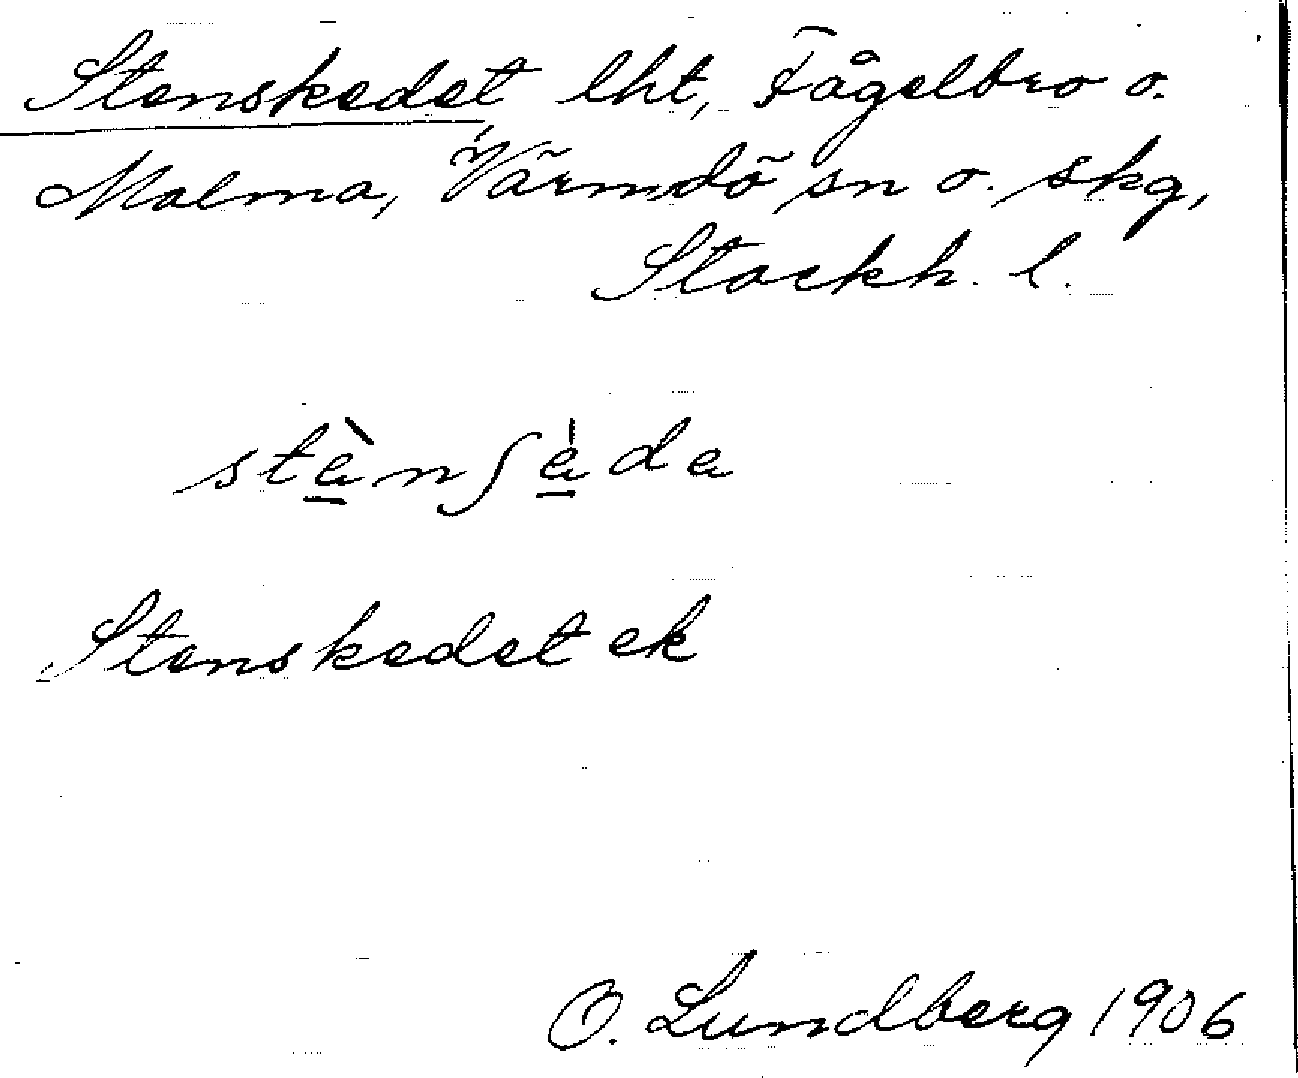 Stenskedet lht, Fågelbro o.
Malma, Värmdö sn o. skg,
Stockh. l.
stènʃède
Stenskedet ek
O. Lundberg 1906